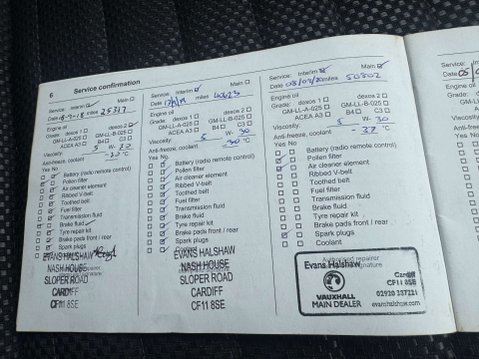 6 Service confirmation
Service: Interim Main
Date 18-7-18 miles 25317
Engine oil
Grade: dexos 1 dexos 2
GM-LL-A-025 GM-LL-B-025
ACEA A3 B4 C3
Viscosity: 5 W- 30
Anti-freeze, coolant
°C
Yes No
Battery (radio remote control)
Pollen filter
Air cleaner element
Ribbed V-belt
Toothed belt
Fuel filter
Transmission fluid
Brake fluid
Tyre repair kit
Brake pads front / rear
Spark plugs
EVANS HALSHAW
NASH HOUSE
SLOPER ROAD
CARDIFF
CF11 8SE
Service: Interim Main
Date miles
Engine oil
Grade: dexos 1 dexos 2
GM-LL-A-025 GM-LL-B-025
ACEA A3 B4 C3
Viscosity: 5 W- 30
Anti-freeze, coolant
-30 °C
Yes No
Battery (radio remote control)
Pollen filter
Air cleaner element
Ribbed V-belt
Toothed belt
Fuel filter
Transmission fluid
Brake fluid
Tyre repair kit
Brake pads front / rear
Spark plugs
Coolant
EVANS HALSHAW
NASH HOUSE
SLOPER ROAD
CARDIFF
CF11 8SE
Service: Interim Main
Date miles 50802
Engine oil
Grade: dexos 1 dexos 2
GM-LL-A-025 GM-LL-B-025
ACEA A3 B4 C3
Viscosity: 5 W- 30
Anti-freeze, coolant
-37 °C
Yes No
Battery (radio remote control)
Pollen filter
Air cleaner element
Ribbed V-belt
Toothed belt
Fuel filter
Transmission fluid
Brake fluid
Tyre repair kit
Brake pads front / rear
Spark plugs
Coolant
Authorised repairer
signature
Evans Halshaw
VAUXHALL
MAIN DEALER
Cardiff
CF11 8SE
02920 357221
evanshalshaw.com
Service:
Date
Engine oil
Grade:
Viscosity:
Anti-freeze,
Yes No